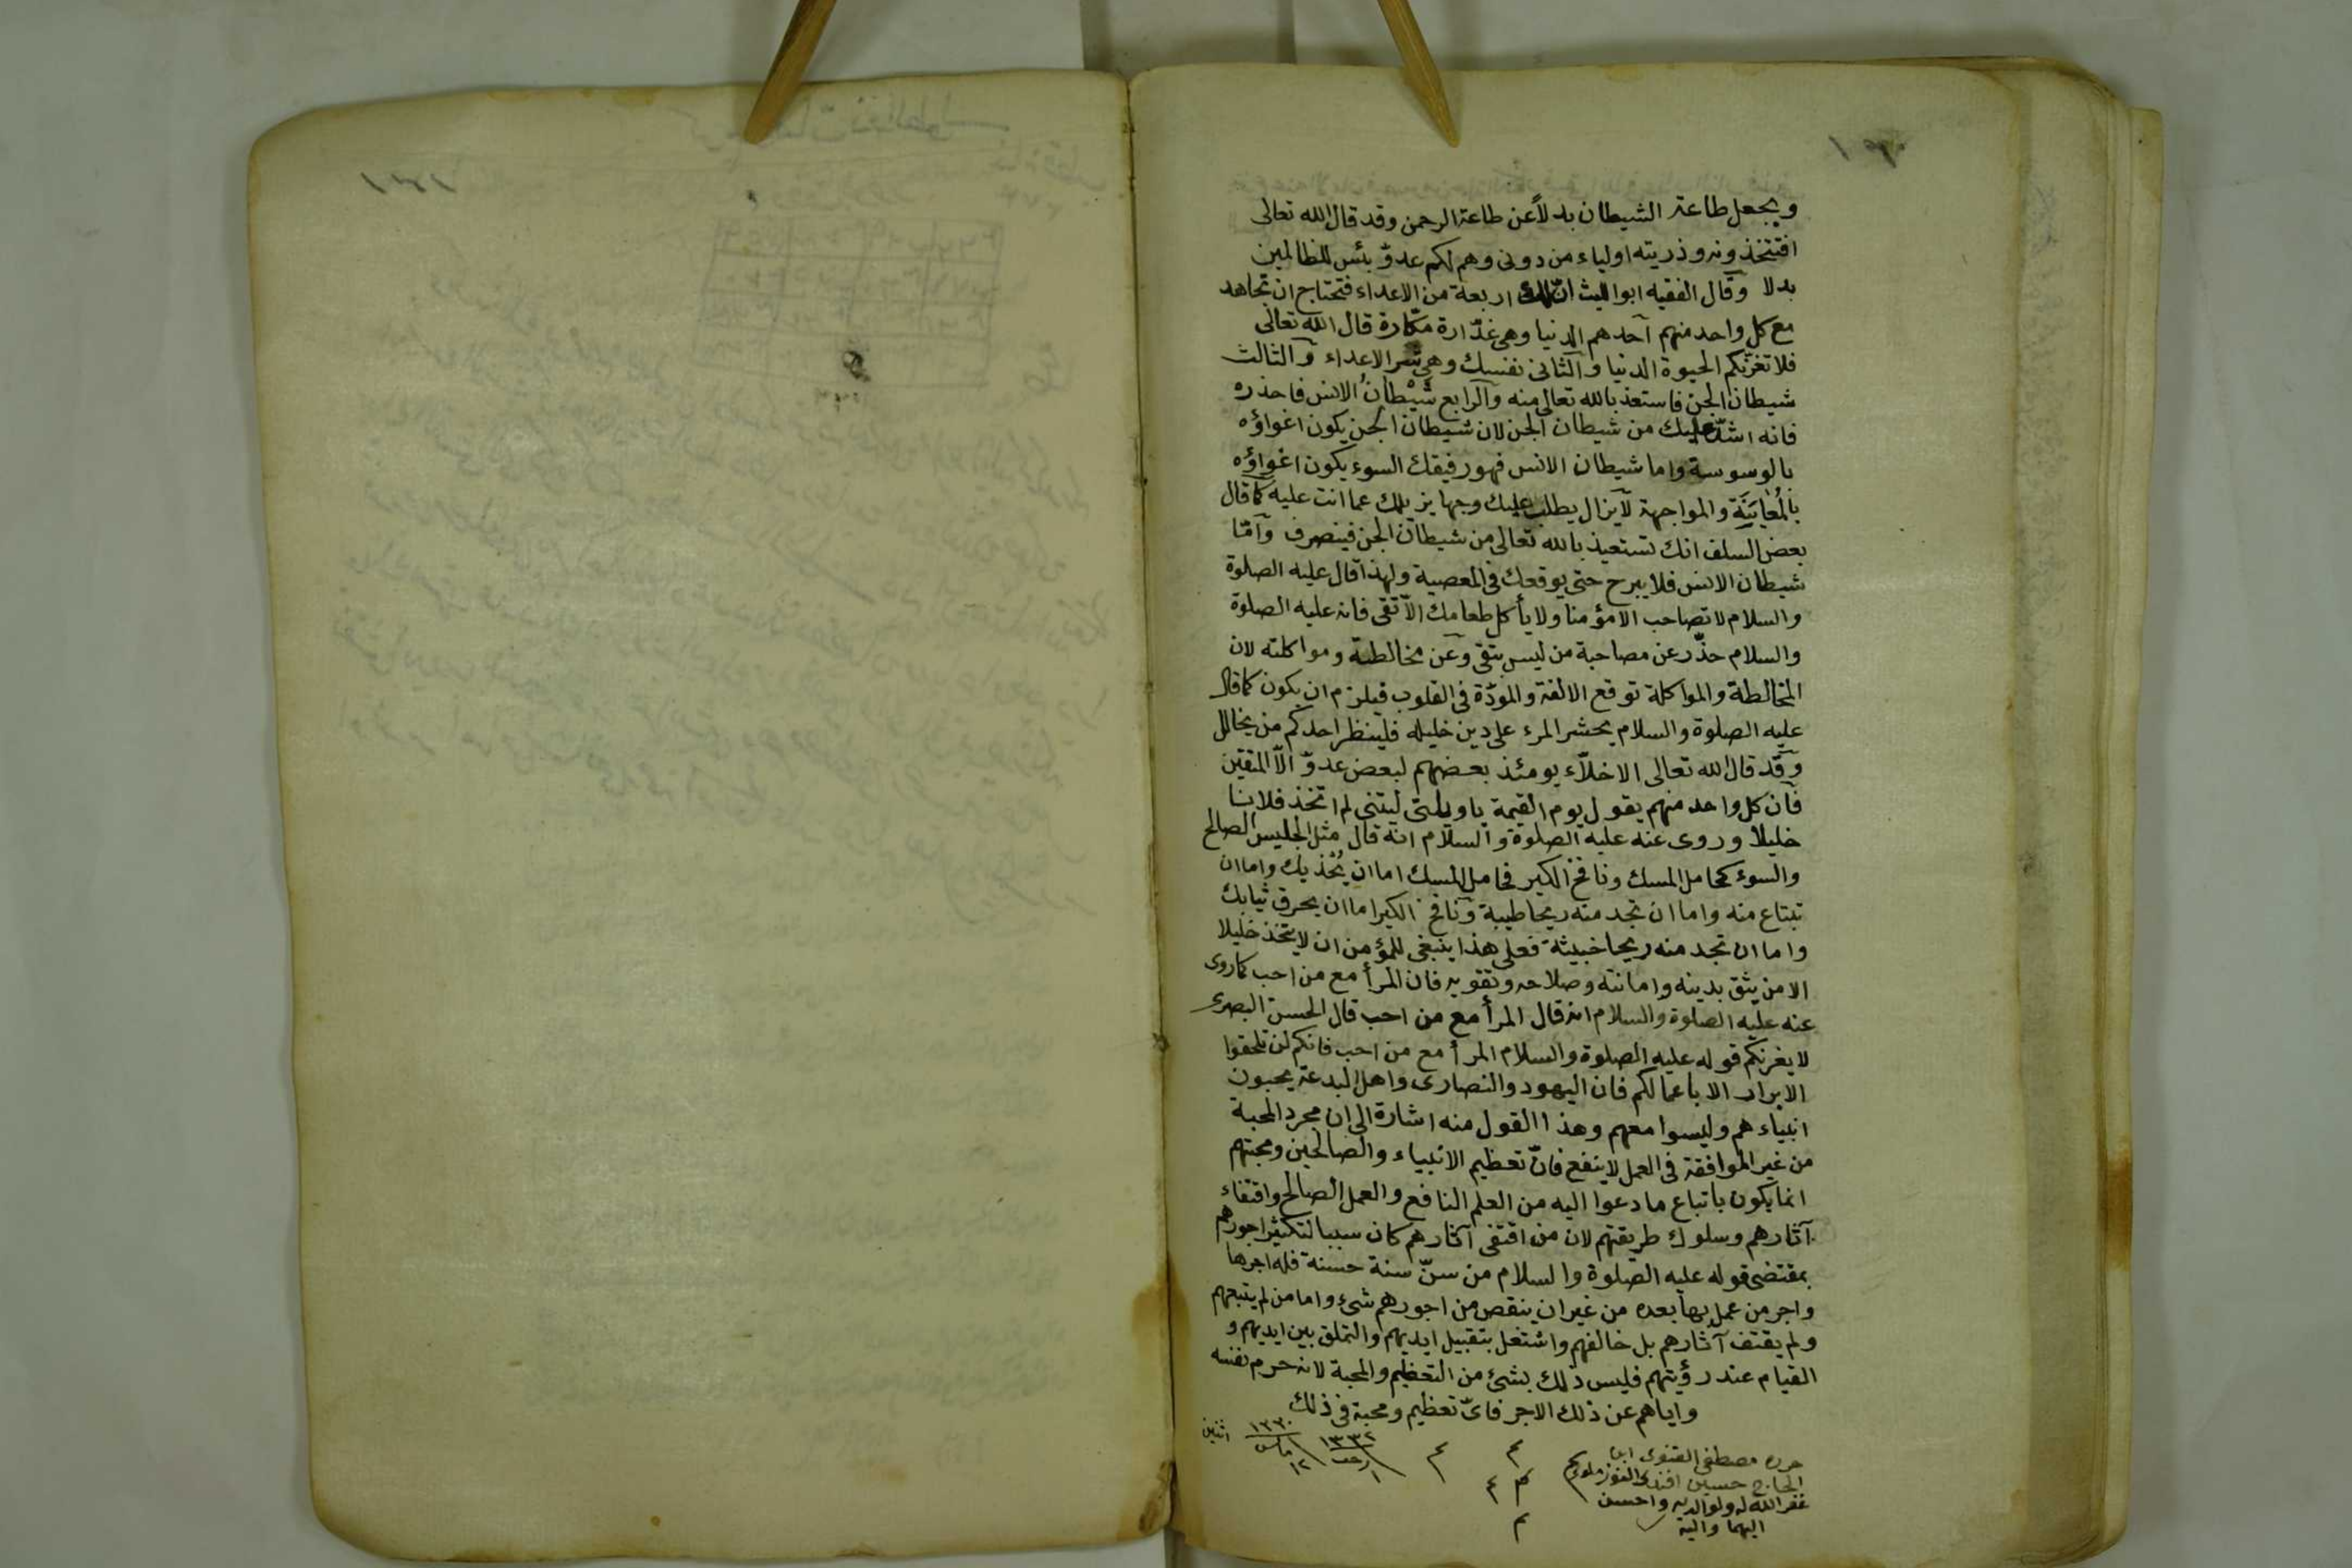 ويجعل طاعة الشيطان بدلاً عن طاعة الرحمن وقد قال الله تعالى
افتتخذونه وذريته اولياء من دونى وهم لكم عدوّ بئس للظالمين
بدلا وقال الفقيه ابو الليث انّ لك اربعة من الاعداء فتحتاج ان تجاهد
مع كل واحد منهم آحدهم الدنيا وهى غدّارة مكّارة قال الله تعالى
فلا تغرّنكم الحيوة الدنيا وآلثانى نفسك وهى شر الاعداء وآلثالث
شيطان الجن فاستعذ بالله تعالى منه وآلرابع شَيْطانُ الانس فاحذره
فانه اشدّ عليك من شيطان الجن لان شيطان الجن يكون اغواؤه
بالوسوسة واما شيطان الانس فهو رفيقك السوء يكون اغواؤه
بالمُعايَنَة والمواجهة لآيزال يطلب عليك وجها يزيلك عما انت عليه كما قال
بعض السلف انك تستعيذ بالله تعالى من شيطان الجن فينصرف وآمّا
شيطان الانس فلا يبرح حتى يوقعك فى المعصية ولهذا قال عليه الصلوة
والسلام لا تصاحب الا مؤمنا ولا يأكل طعامك الاّ تقى فانه عليه الصلوة
والسلام حذّر عن مصاحبة من ليس بتقى وعن مخالطته ومواكلته لان
المخالطة والمواكلة توقع الالفة والمودّة فى القلوب فيلزم ان يكون كما قال
عليه الصلوة والسلام يحشر المرء على دين خليله فلينظر احدكم من يخالل
وقد قال الله تعالى الاخلاّء يومئذ بعضهم لبعض عدوّ الاّ المتقين
فآن كل واحد منهم يقول يوم القيمة ياويلتى ليتنى لم اتخذ فلانا
خليلا وروى عنه عليه الصلوة والسلام انه قال مثل الجليس الصالح
والسوء كحامل المسك ونافخ الكير فحامل المسك اما ان يُحْذيك واما ان
تبتاع منه واما ان تجد منه ريحا طيبة ونافخ الكير اما ان يحرق ثيابك
واما ان تجد منه ريحا خبيثة فعلى هذا ينبغى للمؤمن ان لا يتخذ خليلا
الا من يثق بدينه وامانته وصلاحه وتقويه فان المرأ مع من احب كما روى
عنه عليه الصلوة والسلام انه قال المرأ مع من احب قال الحسن البصرى
لا يغرنكم قوله عليه الصلوة والسلام المرأ مع من احب فانكم لن تلحقوا
الابرار الا باعمالكم فان اليهود والنصارى واهل البدعة يحبون
انبياءهم وليسوا معهم وهذا القول منه اشارة الى ان مجرد المحبة
من غير الموافقة فى العمل لا ينفع فانّ تعظيم الانبياء والصالحين ومحبتهم
انما يكون باتباع ما دعوا اليه من العلم النافع والعمل الصالح واقتفاء
آثارهم وسلوك طريقتهم لان من اقتفى آثارهم كان سببا لتكثير اجورهم
بمقتضى قوله عليه الصلوة والسلام من سنّ سنة حسنة فله اجرها
واجر من عمل بها بعده من غير ان ينقص من اجورهم شىء واما من لم يتبعهم
ولم يقتف آثارهم بل خالفهم واشتغل بتقبيل ايديهم والتملق بين ايديهم و
القيام عند رؤيتهم فليس ذلك بشئ من التعظيم والمحبة لانه حرم نفسه
واياهم عن ذلك الاجر فاىّ تعظيم ومحبة فى ذلك
حرره مصطفى القنوى ابن
الحاج حسين افندى
غفر الله له ولوالديه واحسن
اليهما واليه
م م م م ٤
١٣٣٢ ١
١٣٣٠ مارس ١٢
اثنين